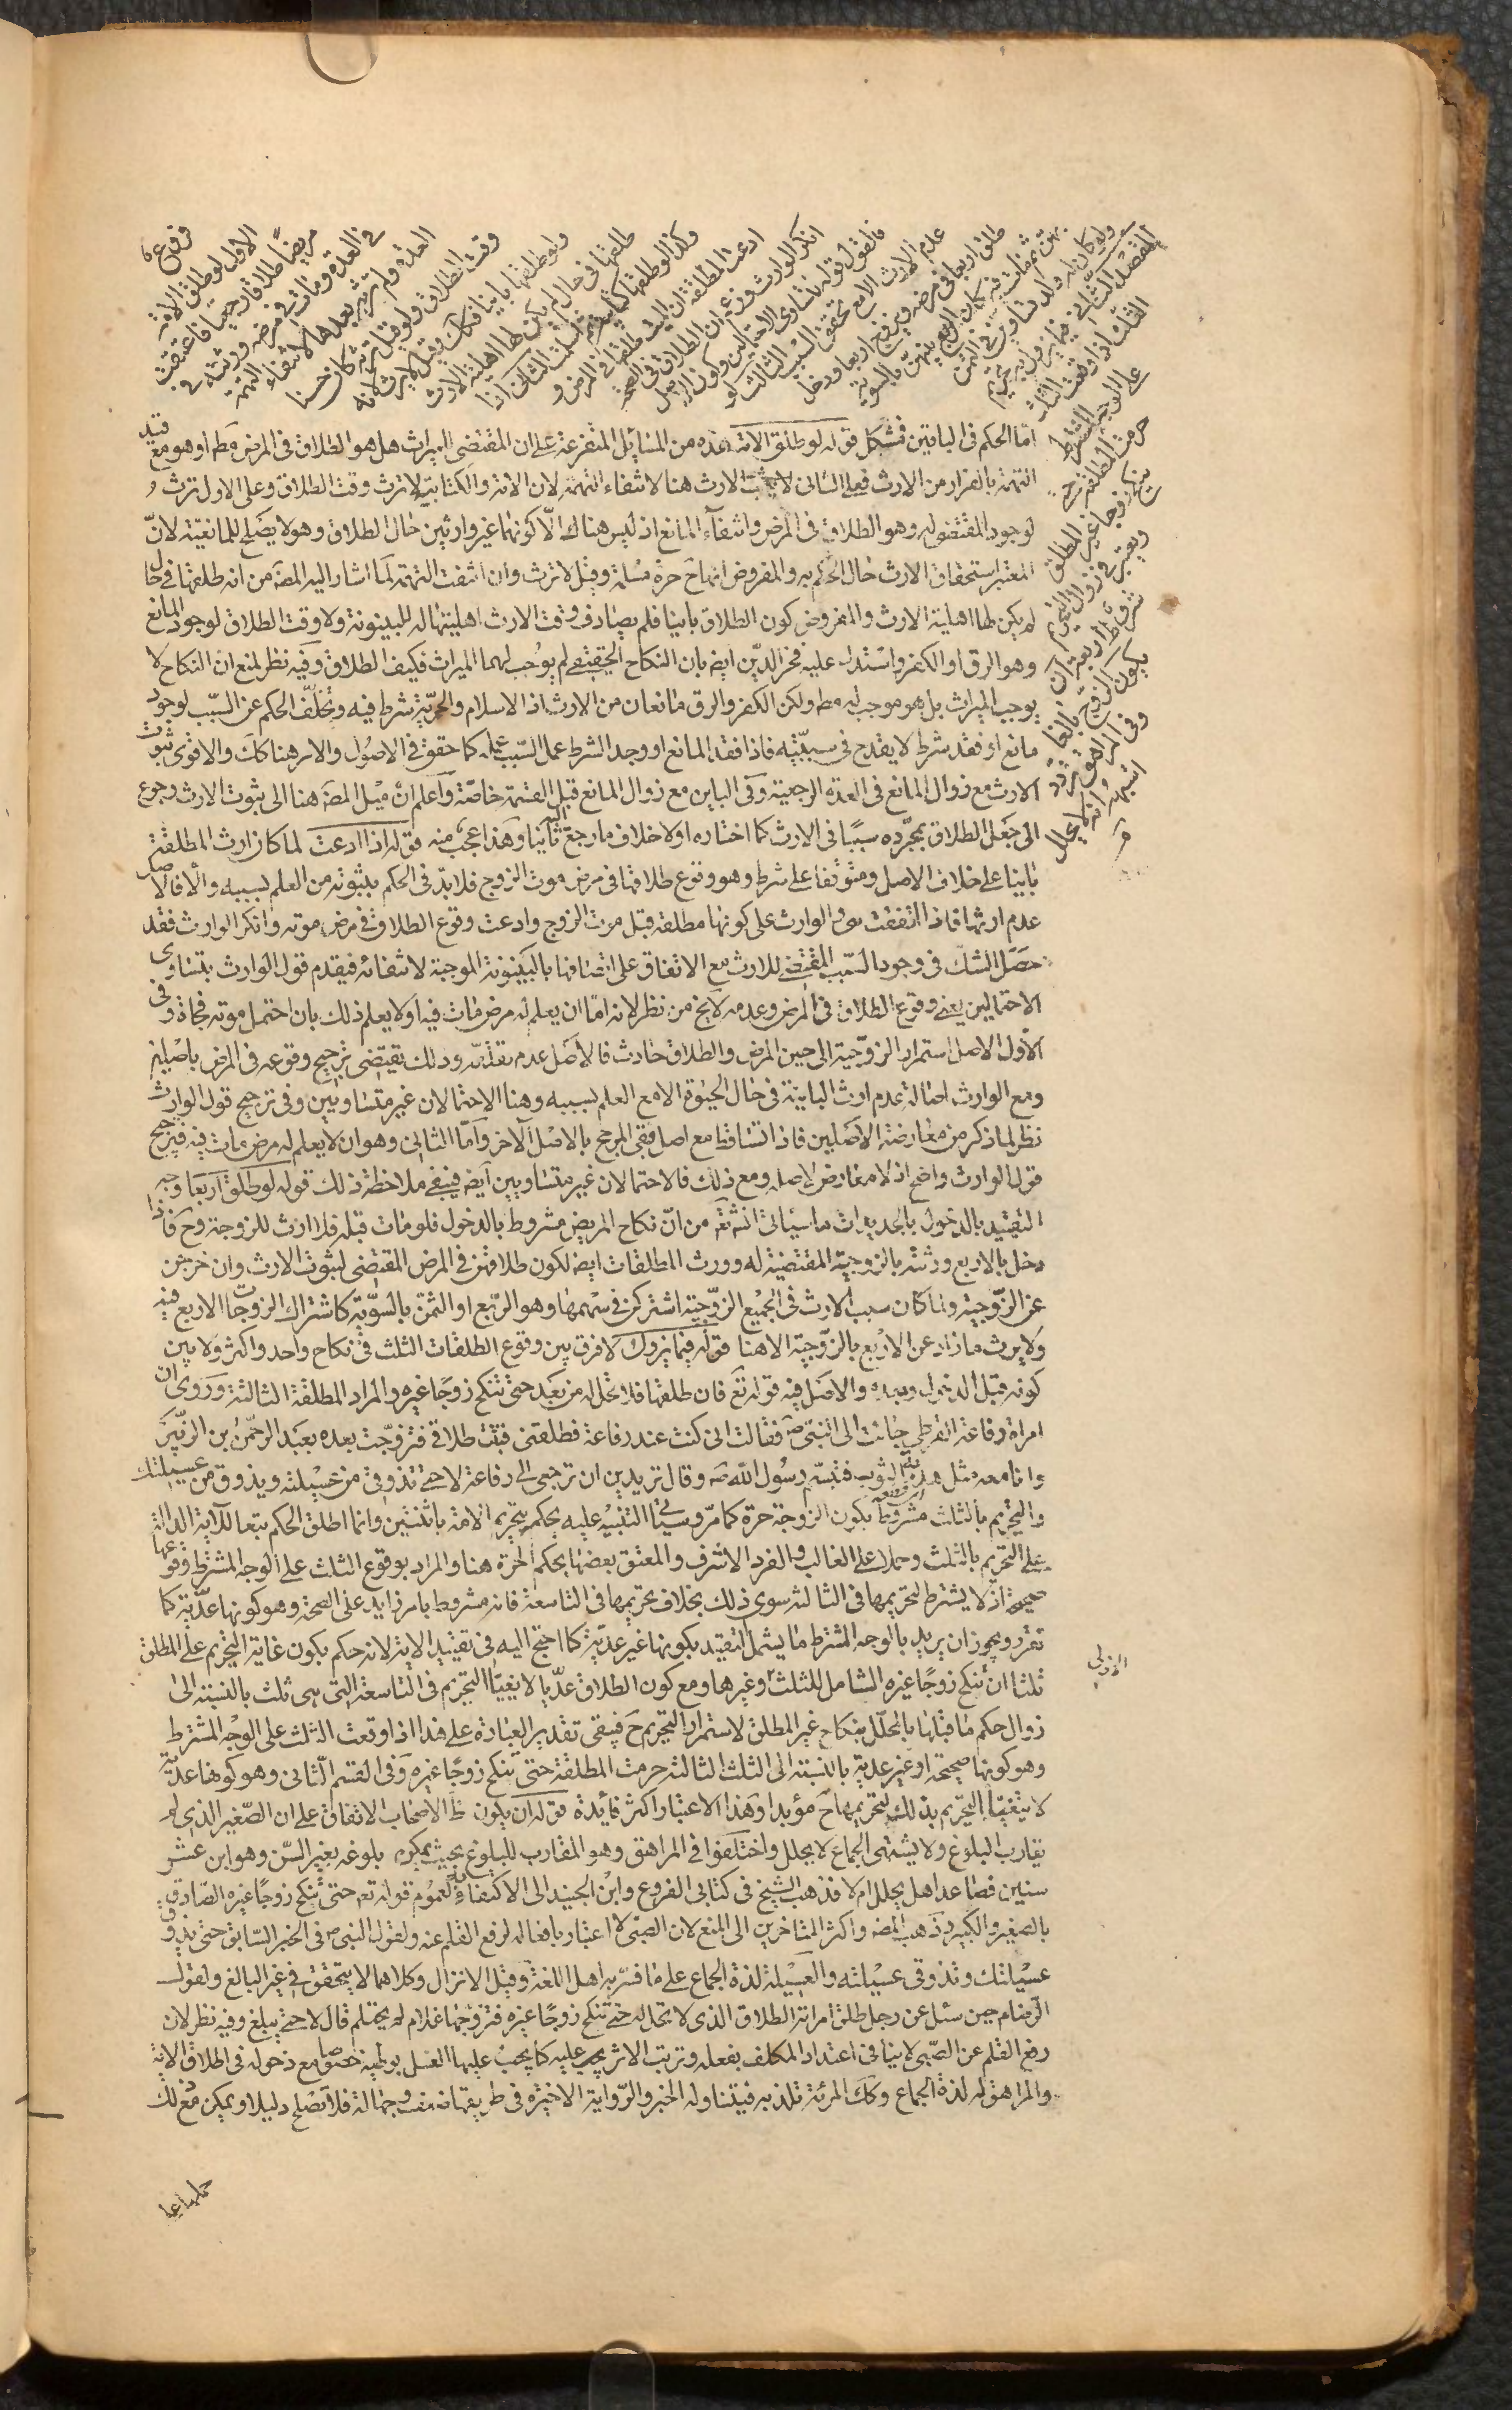 فروع
الاول لو طلق الامة
مريضا طلاقا رجعيا فاعتقت
في العدة ومات في مرضه ورثته في
العدة ولم ترثه بعدها لانتفاء التهمة
وقت الطلاق ولو قيل ترثه كان حسنا
ولو طلقها باينا فكذلك وقيل لا يرث لانه
طلقها في حال لم يكن لها اهلية الارث
وكذا لو طلقها كتابية ثم اسلمت الثاني اذا
ادعت المطلقة ان الميت طلقها في المرض و
انكر الوارث وزعم ان الطلاق في الصحة
فالقول قوله لتساوي الاحتمالين وكون الاصل
عدم الارث الا مع تحقق السبب الثالث لو
طلق اربعا في مرضه وتزوج اربعا ودخل
بهن ثم مات فيه كان الربع بينهن بالسوية
ولو كان له ولد تساوين في الثمن
المقصد الثاني فيما يزول به تحريم
الثلث اذا وقعت الثلث
على الوجه المشترط
حرمت المطلقة حتى
ينكح زوجا غير المطلق
ويعتبر في زوال التحريم
شروط اربعة ان
يكون الزوج بالغا
وفي المراهق تردد
اشبهه انه لا يحلل
اما الحكم في الباينين فمشكل قوله لو طلق الامة هذه من المسائل المتفرعة على ان المقتضي للميراث هل هو الطلاق في المرض مط او هو مع قيد
التهمة بالفرار من الارث فعلى الثاني لا يثبت الارث هنا لانتفاء التهمة لان الامة والكتابية لا ترث وقت الطلاق وعلى الاول ترث
لوجود المقتضي له وهو الطلاق في المرض وانتفاء المانع اذ ليس هناك الا كونهما غير وارثين حال الطلاق وهو لا يصلح للمانعية لان
المعتبر استحقاق الارث حال الحكم به والمفروض انها ح حرة مسلمة وقيل لا ترث وان انتفت التهمة لما اشار اليه المصنف من انه طلقها في حال
لم يكن لها اهلية الارث والمفروض كون الطلاق باينا فلم يصادف وقت الارث اهليتها له للبينونة ولا وقت الطلاق لوجود المانع
وهو الرق او الكفر واستدل عليه فخر الدين ايض بان النكاح الحقيقي لم يوجب لهما الميراث فكيف الطلاق وفيه نظر لمنع ان النكاح لا
يوجب الميراث بل هو موجب له مط ولكن الكفر والرق مانعان من الارث اذ الاسلام والحرية شرط فيه وتخلف الحكم عن السبب لوجود
مانع او فقد شرط لا يقدح في سببيته فاذا فقد المانع او وجد الشرط عمل السبب عمله كما حقق في الاصول والامر هنا كك والاقوى ثبوت
الارث مع زوال المانع في العدة الرجعية وفي الباين مع زوال المانع قبل القسمة خاصة واعلم ان ميل المصنف هنا الى ثبوت الارث رجوع
الى جعل الطلاق بمجرده سببا في الارث كما اختاره اولا خلاف ما رجع اليه ثانيا وهذا عجب منه قوله اذا ادعت لما كان ارث المطلقة
باينا على خلاف الاصل ومتوقفا على شرط وهو وقوع طلاقها في مرض موت الزوج فلا بد في الحكم بثبوته من العلم بسببه والا فالاصل
عدم ارثها فاذا اتفقت هي والوارث على كونها مطلقة قبل موت الزوج وادعت وقوع الطلاق في مرض موته وانكر الوارث فقد
حصل الشك في وجود السبب المقتضي للارث مع الاتفاق على اتصافها بالبينونة الموجبة لانتفائه فيقدم قول الوارث بتساوي
الاحتمالين يعني وقوع الطلاق في المرض وعدمه لا يخ من نظر لانه اما ان يعلم له مرض مات فيه او لا يعلم ذلك بان احتمل موته فجاة وفي
الاول الاصل استمرار الزوجية الى حين المرض والطلاق حادث فالاصل عدم تقدمه وذلك يقتضي ترجيح وقوعه في المرض باصلين
ومع الوارث اصالة عدم ارث الباينة في حال الحيوة الا مع العلم بسببه وهنا الاحتمالان غير متساويين وفي ترجيح قول الوارث
نظر لما ذكر من معارضة الاصلين فاذا تساقطا مع اصل بقي المرجح بالاصل الاخر واما الثاني وهو ان لا يعلم له مرض مات فيه فترجيح
قول الوارث واضح اذ لا معارض لاصله ومع ذلك فالاحتمالان غير متساويين ايض فينبغي ملاحظة ذلك قوله لو طلق اربعا وجه
التقييد بالدخول بالجديدات ما سياتي انشته من ان نكاح المريض مشروط بالدخول فلو مات قبله فلا ارث للزوجة وح فاذا
دخل بالاربع ورثته بالزوجية المقتضية له وورث المطلقات ايض لكون طلاقهن في المرض المقتضي لثبوت الارث وان خرجن
عن الزوجية ولما كان سبب الارث في الجميع الزوجية اشتركن في سهمها وهو الربع او الثمن بالسوية كاشتراك الزوجات الاربع فيه
ولا يرث ما زاد عن الاربع بالزوجية الا هنا قوله فيما يزول لا فرق بين وقوع الطلقات الثلث في نكاح واحد واكثر ولا بين
كونه قبل الدخول وبعده والاصل فيه قوله تع فان طلقها فلا تحل له من بعد حتى تنكح زوجا غيره والمراد المطلقة الثالثة وروى ان
امراة رفاعة القرظي جائت الى النبي ص فقالت اني كنت عند رفاعة فطلقني فبت طلاقي فتزوجت بعده بعبد الرحمن بن الزبير
وانا معه مثل هدبة الثوب فتبسم رسول الله ص وقال تريدين ان ترجعي الى رفاعة لا حتى تذوقي من عسيلته ويذوق من عسيلتك
والتحريم بالثلث مشروط بكون الزوجة حرة كما مر وسياتي التنبيه عليه بحكم تحريم الامة باثنتين وانما اطلق الحكم تبعا للاية الدالة
على التحريم بالثلث وحملا على الغالب والفرد الاشرف والمعتق بعضها بحكم الحرة هنا والمراد بوقوع الثلث على الوجه المشترط وقوعها
صحيحة اذ لا يشترط لتحريمها في الثالثة سوى ذلك بخلاف تحريمها في التاسعة فانه مشروط بامر زايد على الصحة وهو كونها عدية كما
تقرر ويجوز ان يريد بالوجه المشترط ما يشمل التقييد بكونها غير عدية كما احتج اليه في تقييد الاية لانه حكم بكون غاية التحريم على المطلق
ثلثا ان تنكح زوجا غيره الشامل للثلث وغيرها ومع كون الطلاق عديا لا يغيا التحريم في التاسعة التي هي ثلث بالنسبة الى
زوال حكم ما قبلها بالمحلل بنكاح غير المطلق لاستمرار التحريم ح فيبقى تقدير العبادة على هذا اذا وقعت الثلث على الوجه المشترط
وهو كونها صحيحة او غير عدية بالنسبة الى الثلث الثالثة حرمت المطلقة حتى تنكح زوجا غيره وفي القسم الثاني وهو كونها عدية
لا يتغيا التحريم بذلك لتحريمها ح مؤبدا وهذا الاعتبار اكثر فائدة قوله ان يكون ظ الاصحاب الاتفاق على ان الصغير الذي لم
يقارب البلوغ ولا يشتهي الجماع لا يحلل واختلفوا في المراهق وهو المقارب للبلوغ بحيث يمكن بلوغه بغير السن وهو ابن عشر
سنين فصاعدا هل يحلل ام لا فذهب الشيخ في كتابي الفروع وابن الجنيد الى الاكتفاء به لعموم قوله تع حتى تنكح زوجا غيره الصادق
بالصغير والكبير وذهب المصنف واكثر المتاخرين الى المنع لان الصبي لا اعتبار بافعاله لرفع القلم عنه ولقول النبي ص في الخبر السابق حتى يذوق
عسيلتك وتذوقي عسيلته والعسيلة لذة الجماع على ما فسر به اهل اللغة وقيل الانزال وكلاهما لا يتحقق في غير البالغ ولقول
الرضا ع حين سئل عن رجل طلق امراته الطلاق الذي لا تحل له حتى تنكح زوجا غيره فتزوجها غلام لم يحتلم قال لا حتى يبلغ وفيه نظر لان
رفع القلم عن الصبي لا ينافي اعتداد المكلف بفعله وترتب الاثر عليه كما يجب عليها الغسل بوطيه خصوصا مع دخوله في اطلاق الاية
والمراهق له لذة الجماع وكك المرئة تلتذ به فيتناوله الخبر والرواية الاخيرة في طريقها ضعف وجهالة فلا تصلح دليلا ويمكن مع ذلك
حملها على